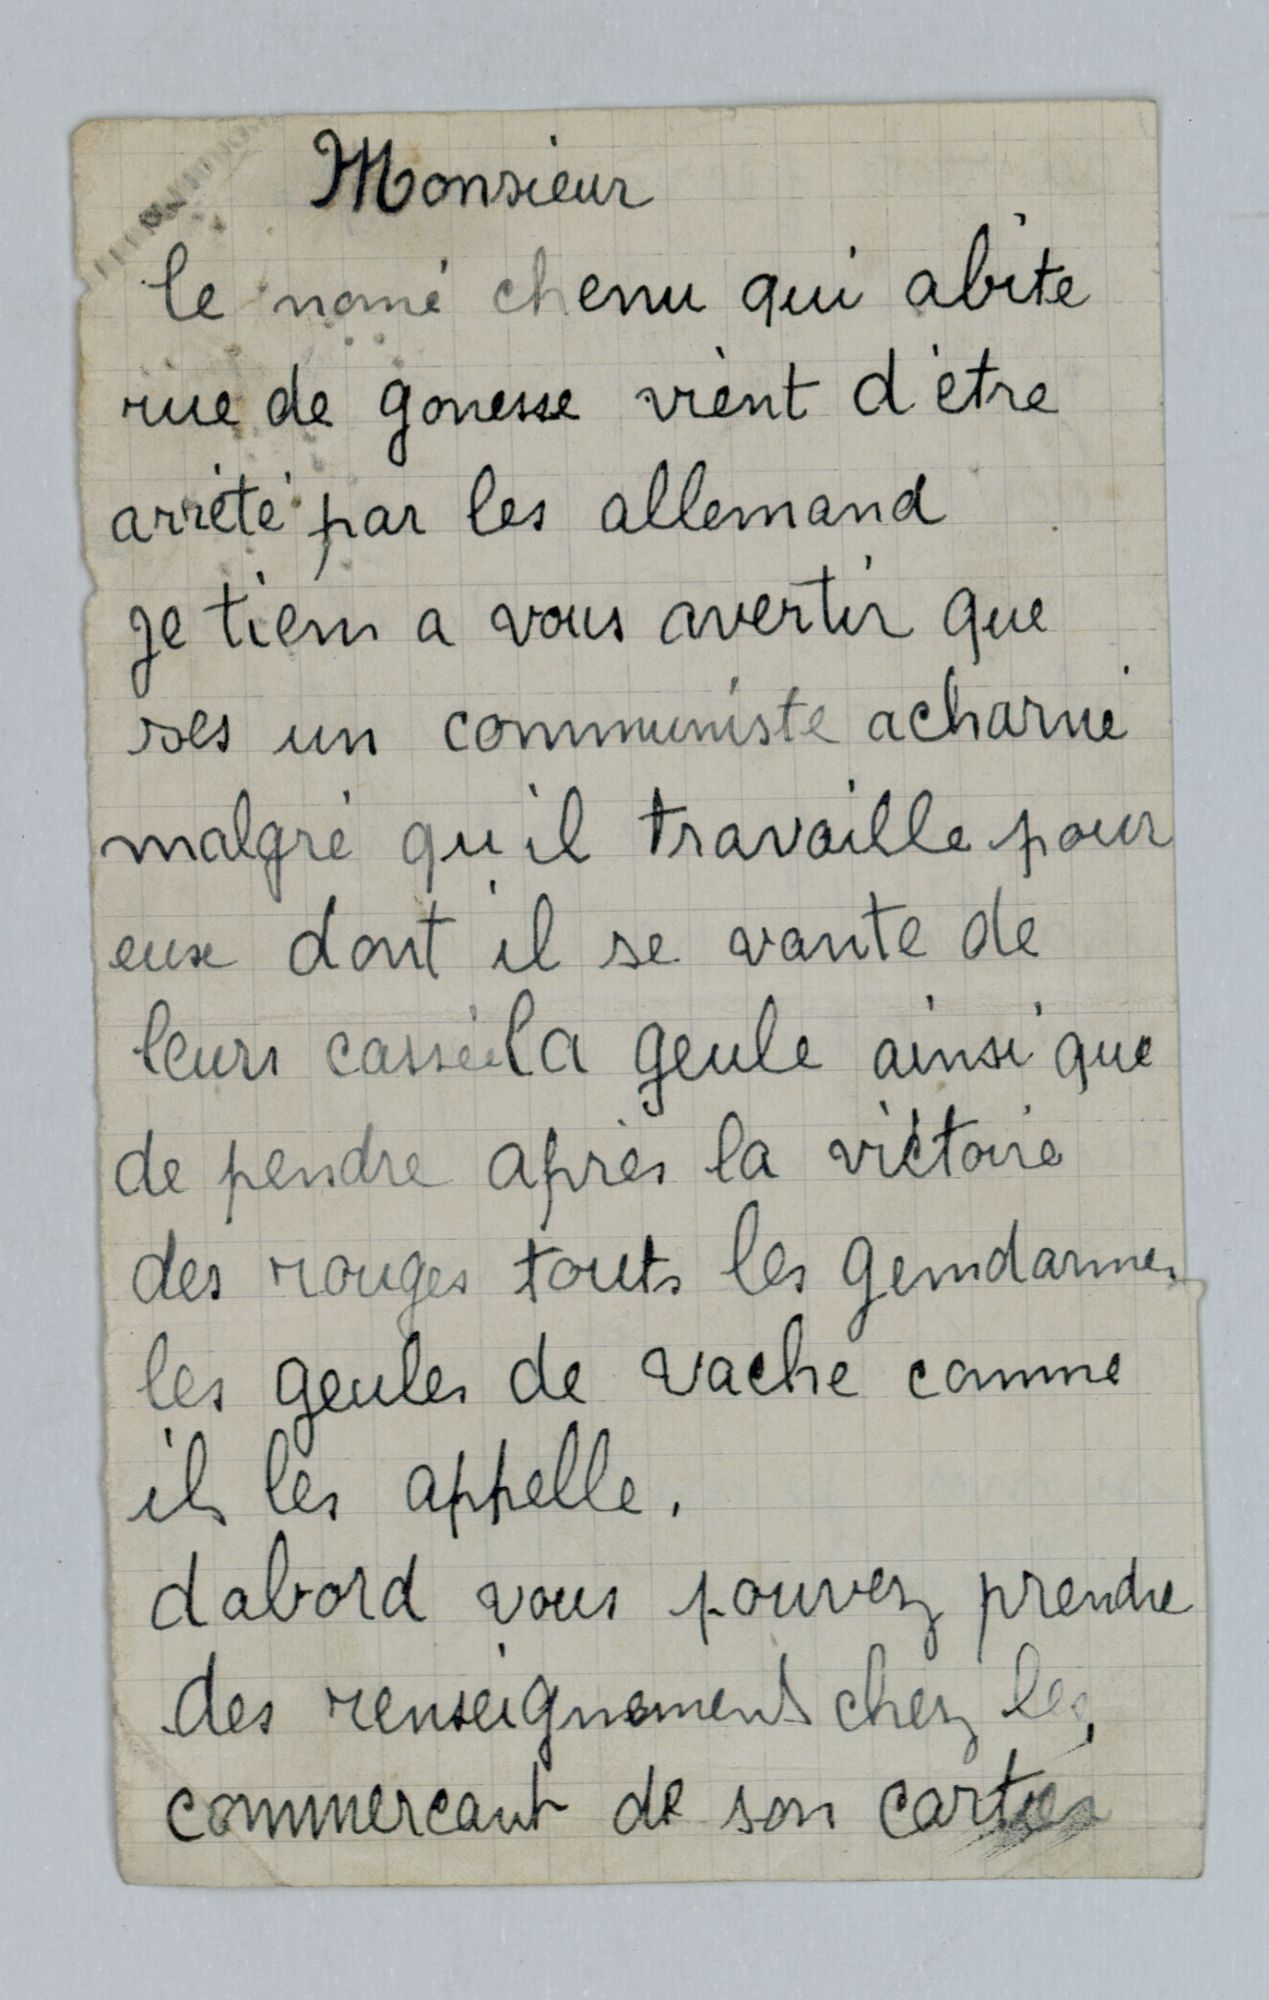 Monsieur
le nomé chenu qui abite
rue de gonesse vient d'être
arrêté par les allemand
je tiens a vous avertir que
ses un communiste acharné
malgré qu'il travaille pour
eux dont il se vante de
leurs cassée la geule ainsi que
de pendre après la victoire
des rouges touts les gendarmes
les geules de vache comme
ils les appelle.
dabord vous pouvez prendre
des renseignements chez les
commercant de son cartier